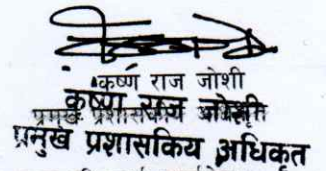 कृष्ण राज जोशी
कृष्ण राज जोशी
प्रमुख प्रशासकीय अधिकृत
प्रमुख प्रशासकिय अधिकृत